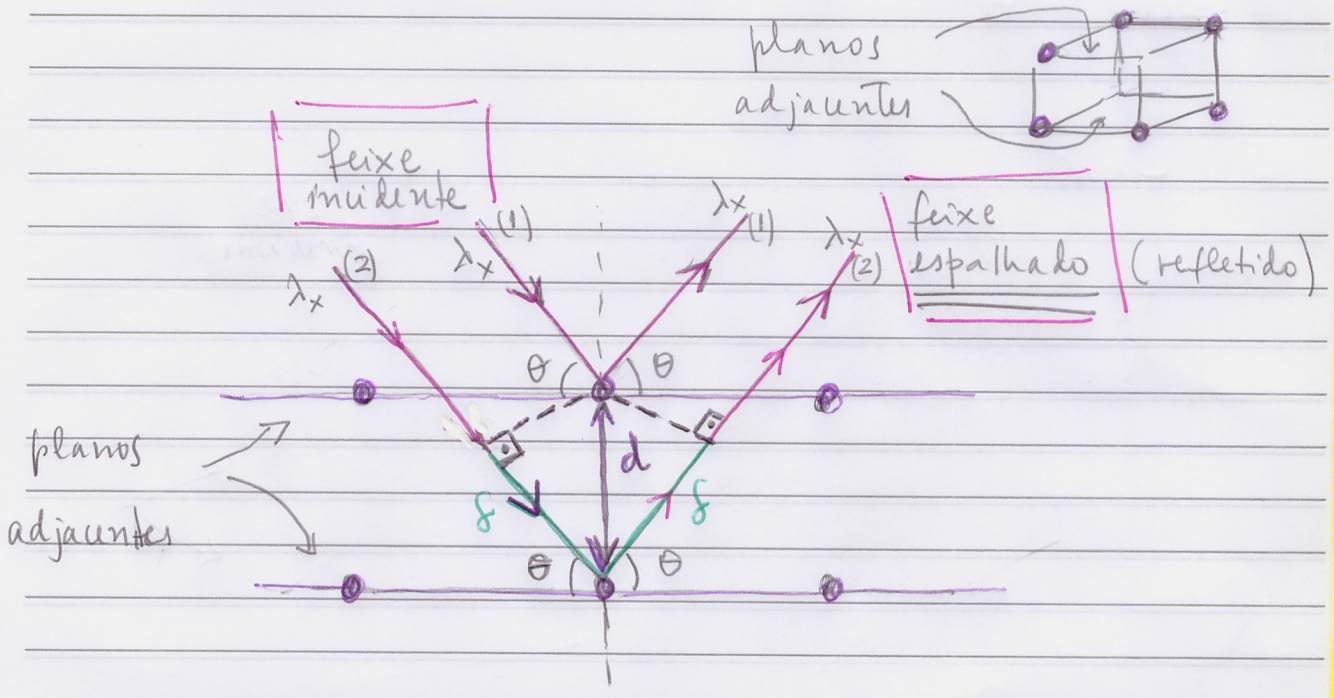 planos
adjacentes
feixe
incidente
λx (2)
λx (1)
λx (1)
λx (2)
feixe
espalhado (refletido)
θ θ
d
planos
adjacentes
δ δ
θ θ